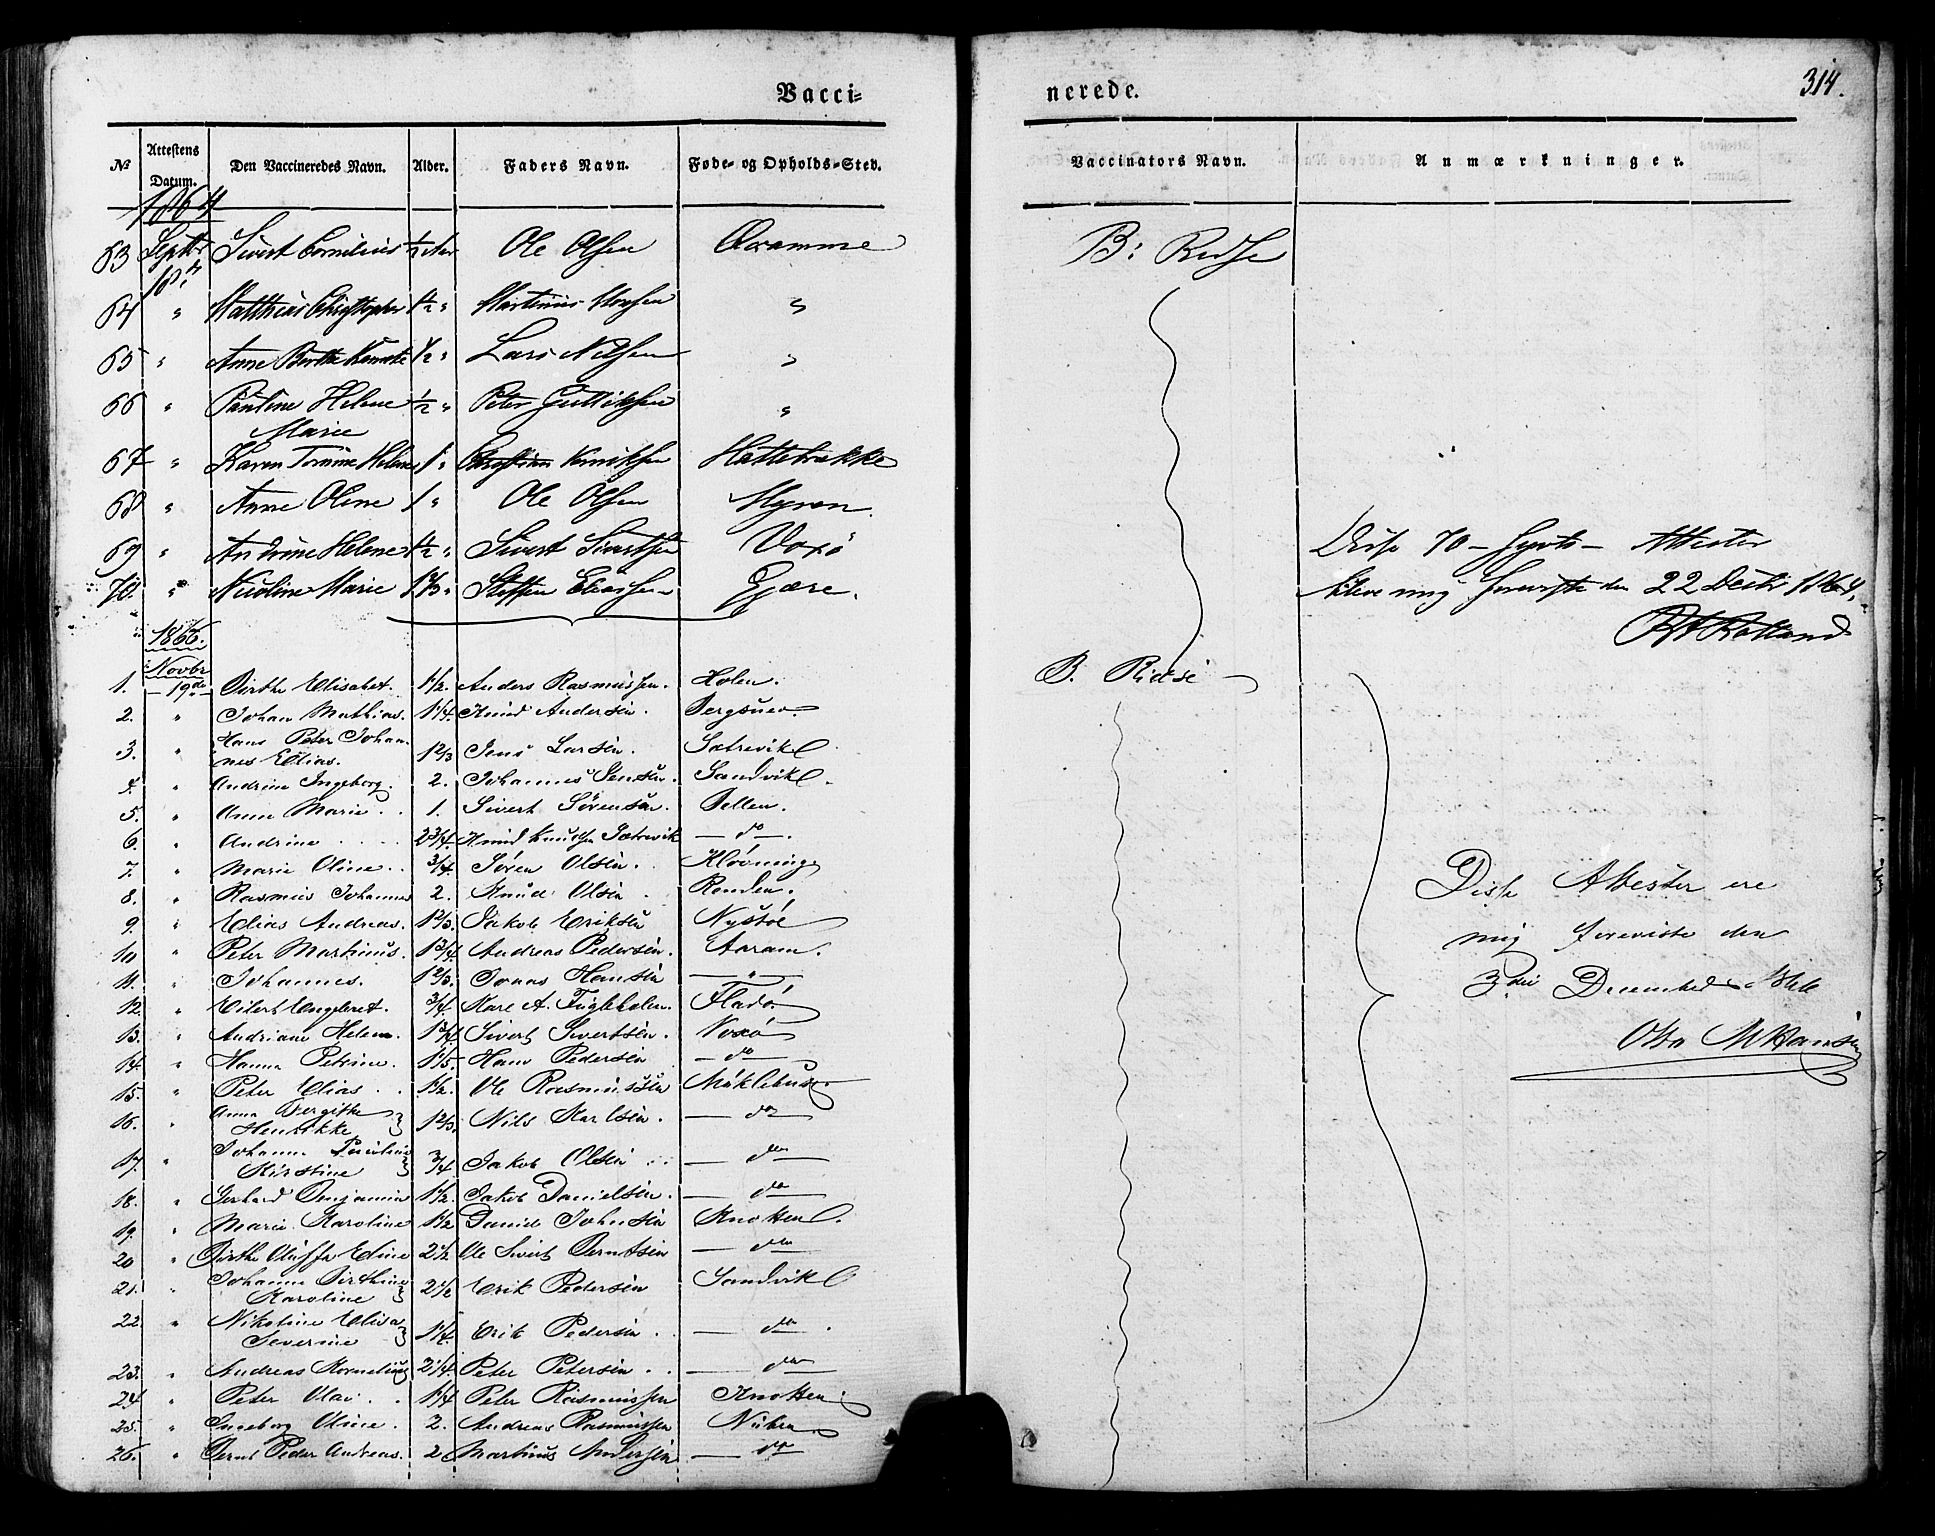 Vacci=
nerede.
314.
No Attestens Datum. Den Vaccineredes Navn. Alder. Faders Navn. Føde- og Opholds-Sted. Vaccinators Navn. Anmærkninger.
1864
63 Septbr 18. Sivert Cornelius ½ Aar Ole Olsen Qvamme B: Ridse
64 " Matthias Christopher 1½ " Martinus Monsen "
65 " Anne Berthe ½ " Lars Nilsen "
66 " Pauline Helene Marie ½ " Peter Guttiksen "
67 " Karen Helene 1 " Henriksen
68 " Anne Oline 1 " Ole Olsen Myren.
69 " Andrine Helene 1½ " Sivert Sivertsen Voxö
70. " Nicoline Marie 1 " Steffen Eliassen Gjære.
Disse 70 Attester
bleve mig foreviste den 22 Decbr 1864.
1866.
Novbr
1. 19de Birthe Elisabet. 1½. Anders Rasmussen. Holen. B. Ridse
2. " Johan Mathias. 1¼. Knud Andersen.
3. " Hans Peter Johan-
nes Elias. 1⅔ Jens Larsen. Sætrevik
4. " Andrine Ingeborg. 2. Johannes Jensen. Sandvik.
5. " Anne Marie. 1. Sivert Sørensen. Pellen.
6. " Andrine 2¾. Knud Knudsen Sætrevik — do —.
7. " Marie Oline. ¾. Søren Olsen. Kløvning
8. " Rasmus Johannes 2. Knud Olsen. Renden.
9. " Elias Andreas. 1⅔. Jakob Eriksen Nystøe
10 " Peter Martinus. 1¾. Andreas Pedersen. Aaram.
11. " Johannes. 1⅔. Jonas Hansen — " —
12. " Eilert Engebret. ¾. Kare A. Fugleholm. Fladø
13. " Andriane Helene. 1¾ Sivert Sivertsen Voxø
14. " Hanna Petrine. 1⅕. Hans Pedersen — do —
15. " Peter Elias. 1½. Ole Rasmussen Møklebust.
16. " Anna Bergitthe
Henrikke 1⅔. Nils Karlsen. — do —
17. " Johanne Paroline
Kirstine ¾ Jakob Olsen — do —
18. " Gerhard Benjamin 1½. Jakob Danielsen. — do —
19. " Marie Karoline 1½ Daniel Johnsen Knotten.
20 " Birthe Oluffa Eline 2½ Ole Sivert Berntsen — do —
21. " Johanne Birthine
Karoline 2½ Erik Pedersen Sandvik
22. " Nikoline Elisa
Severine 1¼. Erik Pedersen. — do —.
23. " Andreas Kornelius 2¼. Peter Petersen — do —
24 " Peter Olai. 1¼ Peter Rasmussen Knotten
25. " Ingeborg Oline. 2. Andreas Rasmussen
26. " Bernt Peder Andreas. 2 Martinus Andersen — do —
Disse Attester ere
mig foreviste den
3die December 1866
Otto M Hansen